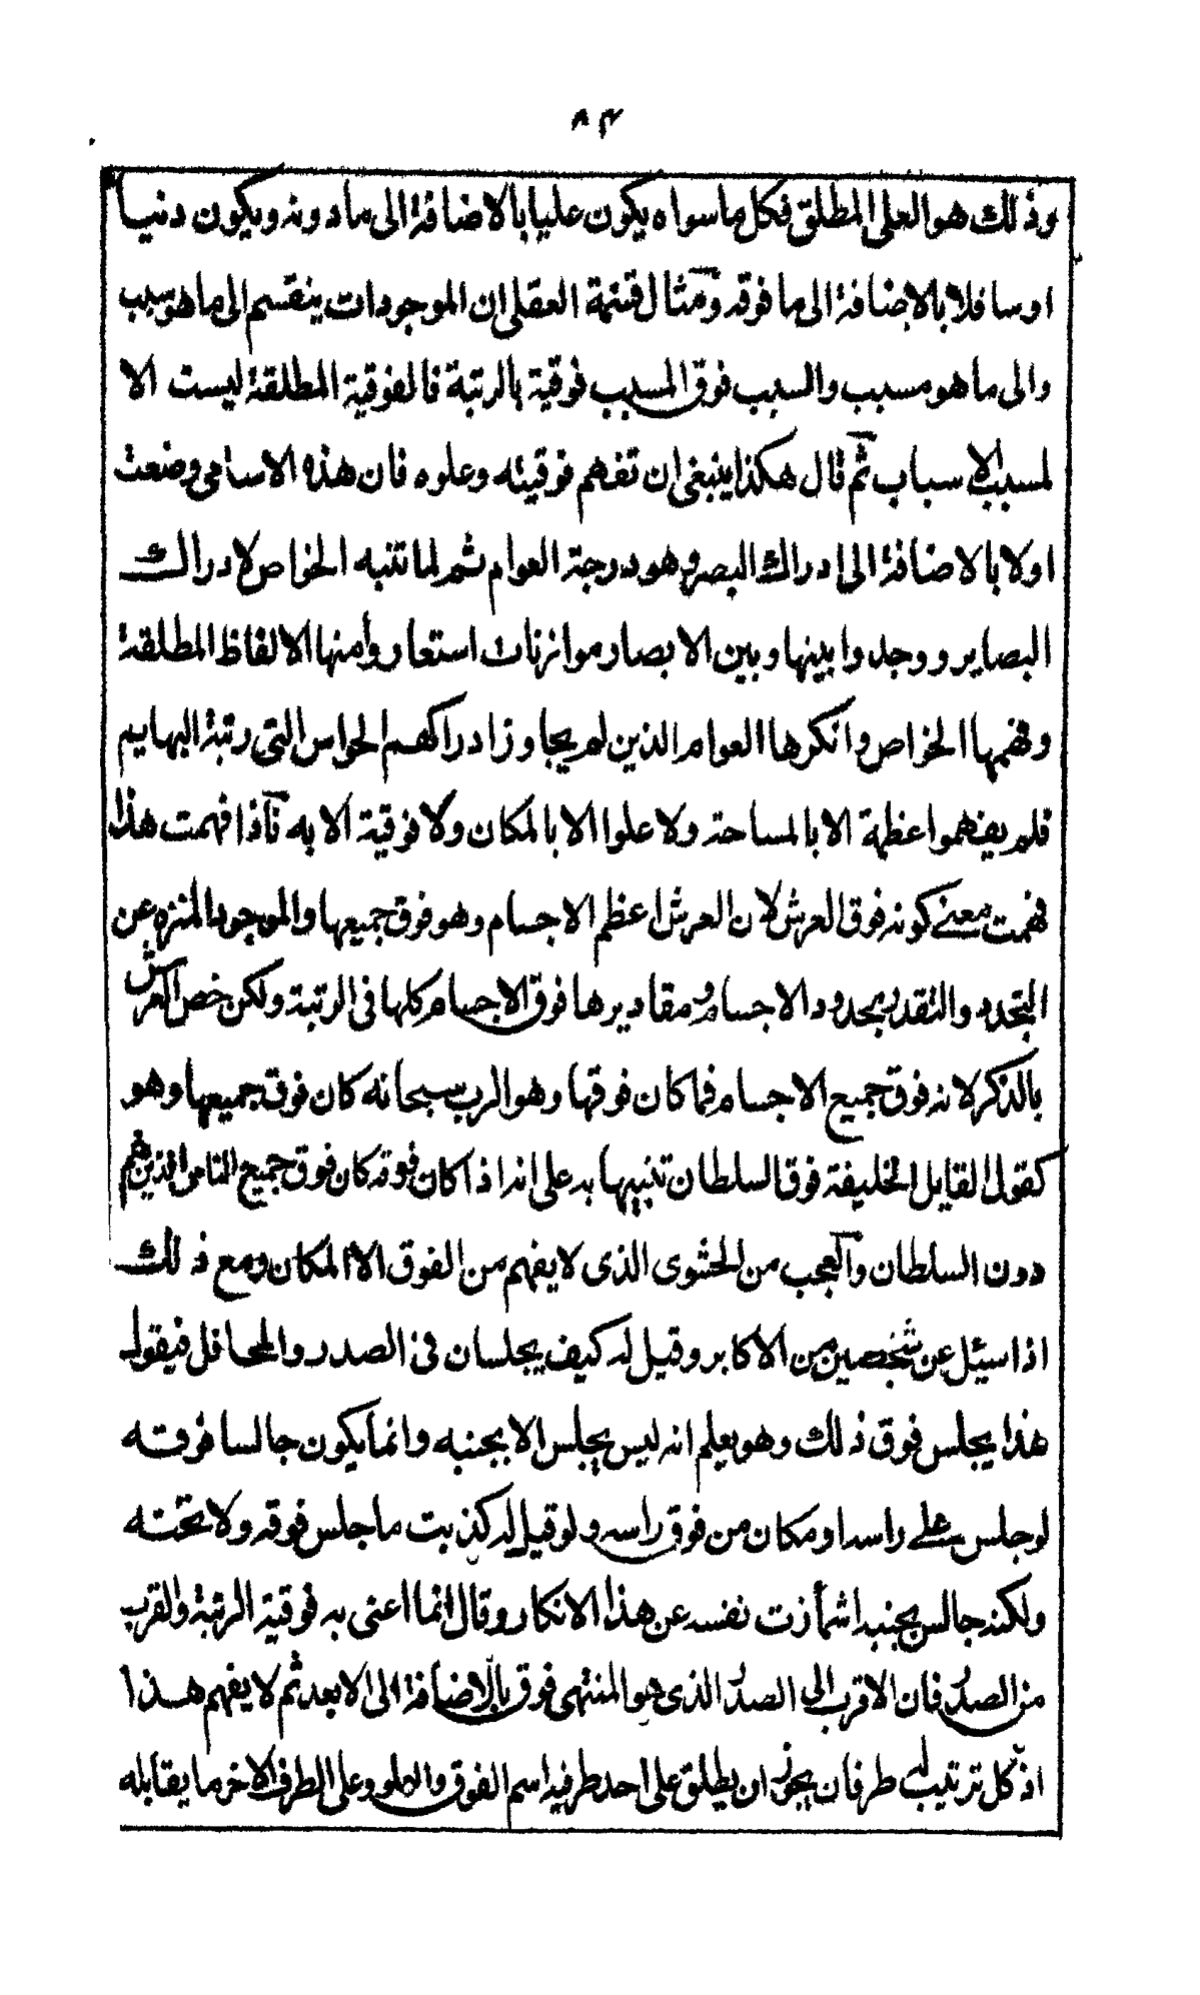 ٨٣
وذلك هو العلى المطلق فكل ما سواه يكون عليا بالاضافة الى ما دونه ويكون دنيا
او سافلا بالاضافة الى ما فوقه ومثال قسمة العقل ان الموجودات ينقسم الى ما هو سبب
والى ما هو مسبب والسبب فوق المسبب فوقية بالرتبة فالفوقية المطلقة ليست الا
لمسبب الاسباب ثم قال هكذا ينبغى ان تفهم فوقيته وعلوه فان هذه الاسامى وضعت
اولا بالاضافة الى ادراك البصر وهو درجة العوام ثم لما تنبه الخواص لادراك
البصاير ووجدوا بينها وبين الابصار موازنات استعاروا منها الالفاظ المطلقة
وفهمها الخواص وانكرها العوام الذين لم يجاوز ادراكهم الحواس التى رتبة البهايم
فلم يفهموا عظمة الا بالمساحة ولا علوا الا بالمكان ولا فوقية الا به فاذا فهمت هذا
فهمت معنى كونه فوق العرش لان العرش اعظم الاجسام وهو فوق جميعها والموجود المنزه عن
التحدد والتقدر بحدود الاجسام ومقاديرها فوق الاجسام كلها فى الرتبة ولكن خص العرش
بالذكر لانه فوق جميع الاجسام فما كان فوقها وهو الرب سبحانه كان فوق جميعها وهو
كقول القايل الخليفة فوق السلطان تنبيها به على انه اذا كان فوقه كان فوق جميع الناس الذين هم
دون السلطان والعجب من الحشوى الذى لا يفهم من الفوق الا المكان ومع ذلك
اذا سيئل عن شخصين من الاكابر وقيل له كيف يجلسان فى الصدر والمحافل فيقول
هذا يجلس فوق ذلك وهو يعلم انه ليس يجلس الا بجنبه وانما يكون جالسا فوقه
لو جلس على راسه او مكان من فوق راسه ولو قيل له كذبت ما جلس فوقه ولا تحته
ولكنه جالس بجنبه اشمأزت نفسه عن هذا الانكار وقال انما اعنى به فوقية الرتبة والقرب
من الصدر فان الاقرب الى الصدر الذى هو المنتهى فوق بالاضافة الى الابعد ثم لا يفهم هذا
اذ كل ترتيب له طرفان يجوز ان يطلق على احد طرفيه اسم الفوق والعلو وعلى الطرف الاخر ما يقابله